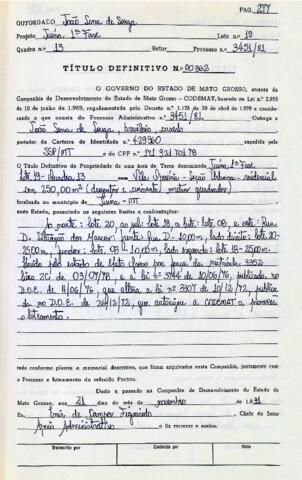 PAG. 277
OUTORGADO João Sena de Souza
Projeto Juína 1ª Fase Lote nº 19
Quadra nº 13 Setor Processo nº 3451/81
TÍTULO DEFINITIVO Nº 00362
O GOVERNO DO ESTADO DE MATO GROSSO, através da
Companhia de Desenvolvimento do Estado de Mato Grosso - CODEMAT, baseado na Lei n.º 2.893
de 10 de junho de 1969, regulamentada pelo Decreto n.º 1.138 de 30 de abril de 1970 e consideran-
do o que consta do Processo Administrativo n.º 3451/81 outorga a
João Sena de Souza, brasileiro, casado
portador da Carteira de Identidade n.º 429960 expedida pela
SSP/MT e do CPF n.º
O Título Definitivo de Propriedade de uma área de Terra denominada Juína 1ª Fase
lote 19 - Quadra 13 Seção Urbana - residencial
com 250,00 m² (duzentos e cinquenta metros quadrados)
localizada no município de Juína - MT
neste Estado, possuindo os seguintes limites e confrontações:
Ao norte: lote 20, ao sul: lote 18, a leste: lote 08 e oeste: Rua
D. Situação dos Marcos: frente: Rua D - 10,00m, lado direito: lote 20-
25,00m, fundos: lote 08 - 10,00m, lado esquerdo: lote 18 - 25,00m.
pelo estado de Mato Grosso por força da matrícula 3352
livro 2C de 03/07/78 e a lei nº 3744 de 10/06/76, publicada no
D.O.E. de 11/06/76, que altera a lei nº 3307 de 10/12/72, publica-
da no D.O.E. de 26/12/72, que autorizou a CODEMAT a promover
o loteamento.
tudo conforme planta e memorial descritivo, que ficam arquivados nesta Companhia, juntamente com
o Processo e loteamento do referido Projeto.
Dado e passado na Companhia de Desenvolvimento do Estado de
Mato Grosso, aos 21 dias do mês de novembro de 1991
Eu, de Campos Figueiredo Chefe do Setor
Apoio Administrativo o fiz escrever e assino.
Transcrito por Conferido por Visto